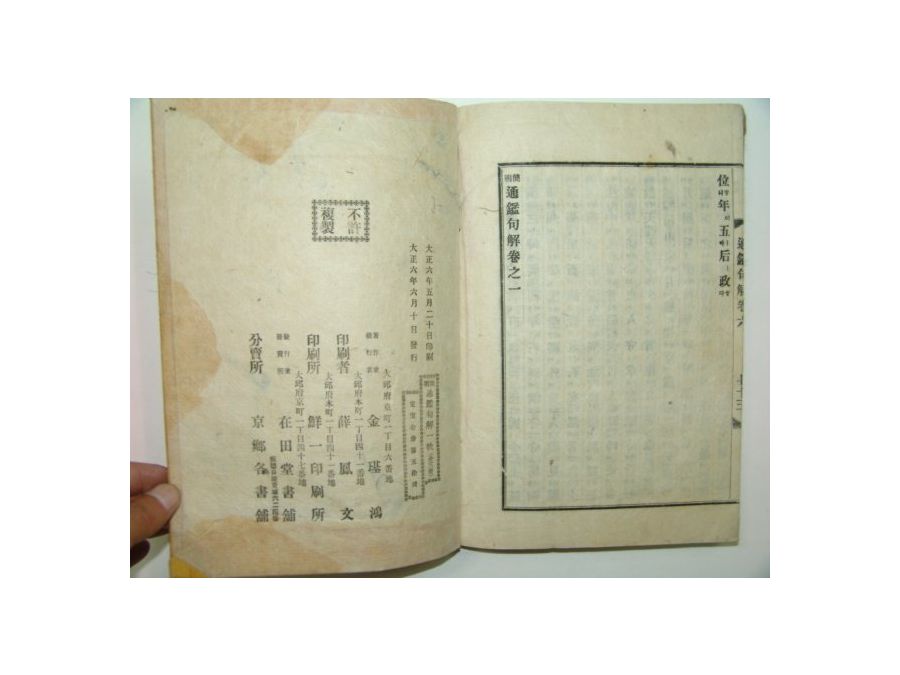 位年五后政
簡明通鑑句解卷之一
通鑑句解卷六
大正六年五月二十日印刷
大正六年六月十日發行
簡明通鑑句解一帙
不許
複製
大邱府京町一丁目六番地
著作兼
發行者 金璂鴻
大邱府本町一丁目四十一番地
印刷者 薛鳳文
大邱府本町一丁目四十一番地
印刷所 鮮一印刷所
大邱府京町一丁目四十七番地
發行兼
發賣所 在田堂書舖
分賣所 京鄉各書舖